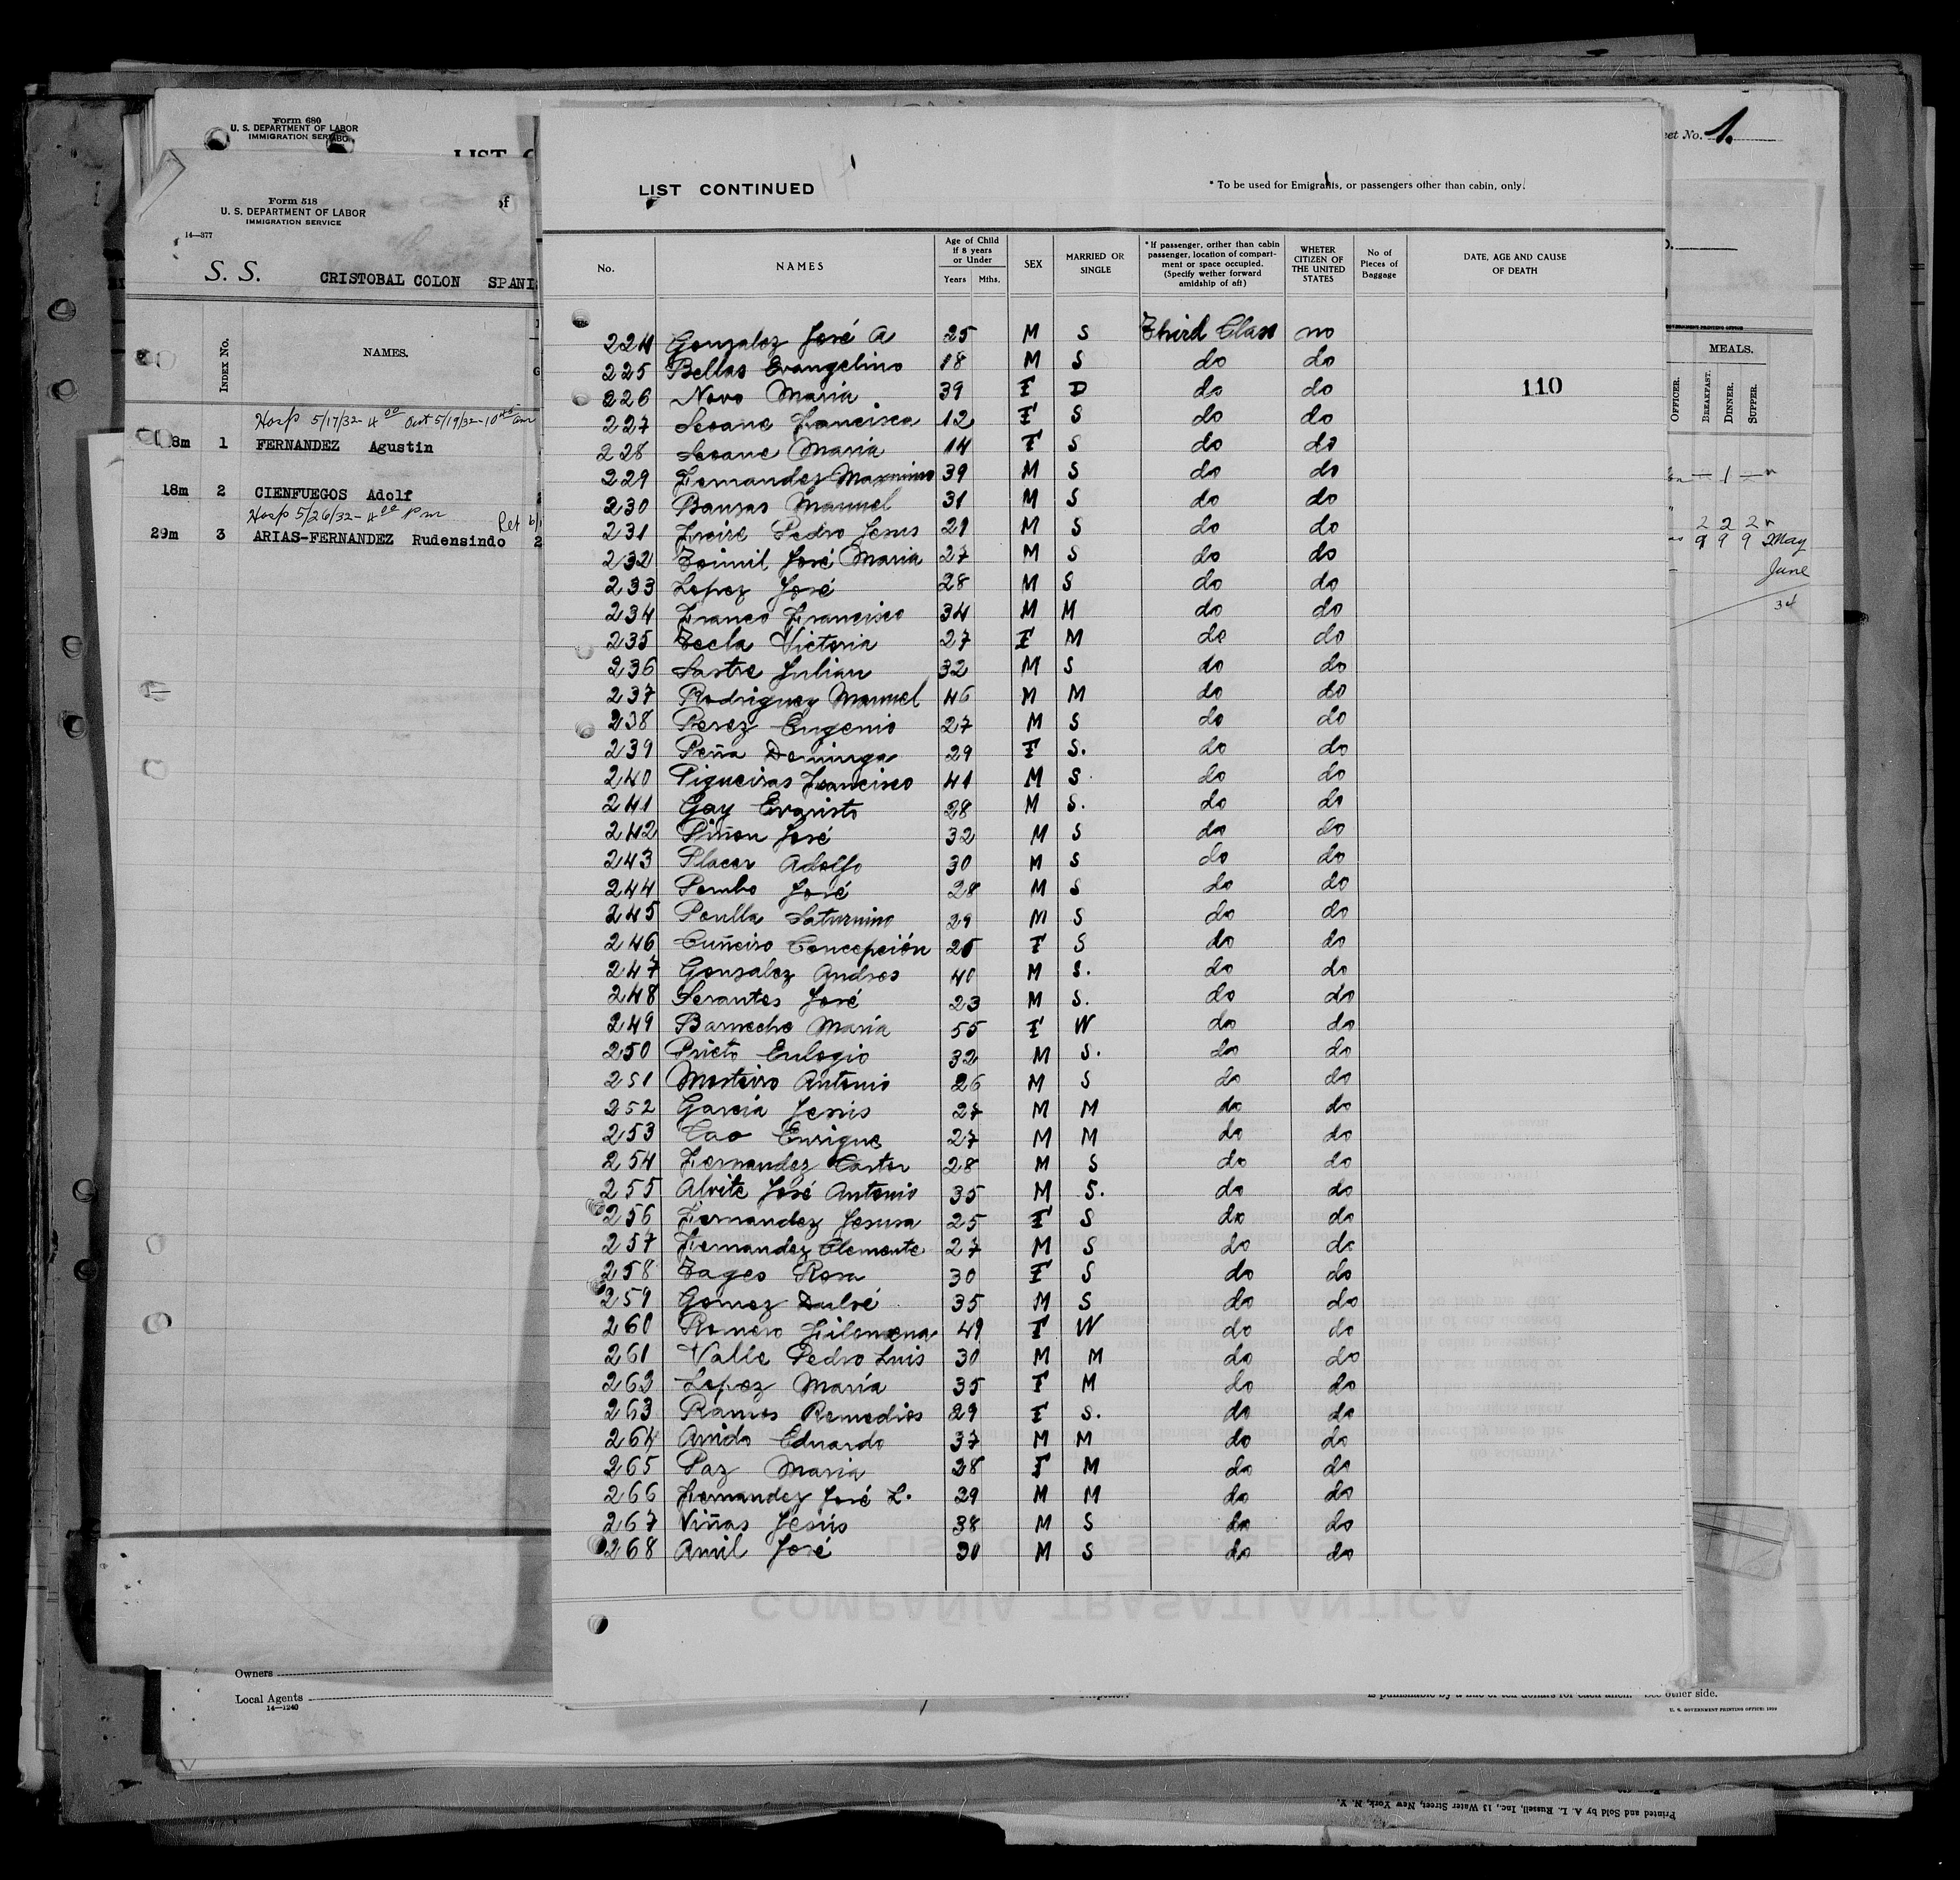 Form 680
U. S. DEPARTMENT OF LABOR
IMMIGRATION
Form 518
U. S. DEPARTMENT OF LABOR
IMMIGRATION SERVICE
14—377
S. S. CRISTOBAL COLON SPANI
INDEX No.
NAMES.
Hosp 5/17/32- 4 00 Out 5/19/32-10 am
18m 1 FERNANDEZ Agustin
18m 2 CIENFUEGOS Adolf
Hosp 5/26/32- 4 00 Pm
29m 3 ARIAS-FERNANDEZ Rudensindo
Owners
Local Agents
14—1240
LIST CONTINUED
* To be used for Emigrants, or passengers other than cabin, only.
No.
NAMES
Age of Child
if 8 years
or Under
Years Mths.
SEX
MARRIED OR
SINGLE
* If passenger, orther than cabin
passenger, location of compart-
ment or space occupied.
(Specify wether forward
amidship of aft)
WHETER
CITIZEN OF
THE UNITED
STATES
No of
Pieces of
Baggage
DATE, AGE AND CAUSE
OF DEATH
224 Gonzalez José A 25 M S Third Class no
225 Bellas Evangelino 18 M S do do
226 Novo Maria 39 F D do do 110
227 Seoane Francisca 12 F S do do
228 Seoane Maria 14 F S do do
229 Fernandez Maximino 39 M S do do
230 Bansas Manuel 31 M S do do
231 Freire Pedro Jesus 21 M S do do
232 Toimil José Maria 27 M S do do
233 Lopez José 28 M S do do
234 Franco Francisco 34 M M do do
235 Tecla Victoria 27 F M do do
236 Sastre Julian 32 M S do do
237 Rodriguez Manuel 46 M M do do
238 Perez Eugenio 27 M S do do
239 Peña Dominga 29 F S. do do
240 Pigueiras Francisco 41 M S do do
241 Gay Evaristo 28 M S. do do
242 Piñon José 32 M S do do
243 Placer Adolfo 30 M S do do
244 Pombo José 28 M S do do
245 Poulla Saturnino 29 M S do do
246 Cuñeiro Concepción 26 F S do do
247 Gonzalez Andres 40 M S. do do
248 Serantes José 23 M S. do do
249 Barneche María 55 F W do do
250 Prieto Eulogio 32 M S. do do
251 Mosteiro Antonio 26 M S do do
252 García Jesús 27 M M do do
253 Cao Enrique 27 M M do do
254 Fernandez Castor 28 M S do do
255 Alvite José Antonio 35 M S. do do
256 Fernandez Jesusa 25 F S do do
257 Fernandez Clemente 27 M S do do
258 Tages Rosa 30 F S do do
259 Gomez Dulsé 35 M S do do
260 Romero Filomena 49 F W do do
261 Valle Pedro Luis 30 M M do do
262 Lopez María 35 F M do do
263 Ramos Remedios 29 F S. do do
264 Amido Eduardo 37 M M do do
265 Paz Maria 28 F M do do
266 Fernandez José L. 29 M M do do
267 Viñas Jesús 38 M S do do
268 Amil José 30 M S do do
COMPAÑÍA TRASATLÁNTICA
eet No. 1.
MEALS.
OFFICER.
BREAKFAST.
DINNER.
SUPPER.
2 2 2
9 9 9 May
June
34
other side.
U. S. GOVERNMENT PRINTING OFFICE: 1929
Printed and Sold by A. L. Russell, Inc., 13 Water Street, New York, N. Y.